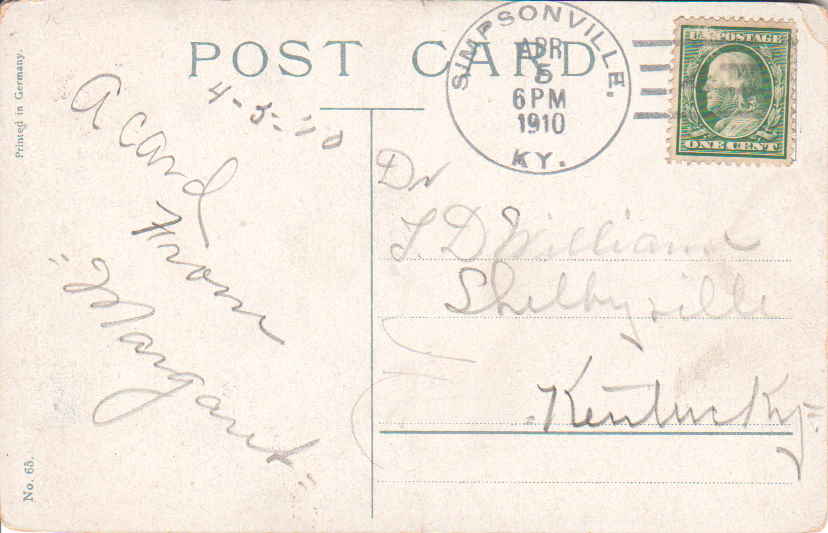 POST CARD
Printed in Germany.
4-5-'10
A card
From
"Margaret"
No. 65.
SIMPSONVILLE.
APR
5
6 PM
1910
KY.
U.S. POSTAGE
ONE CENT
Dr
T. D Williams
Shelbyville
"Kentucky"